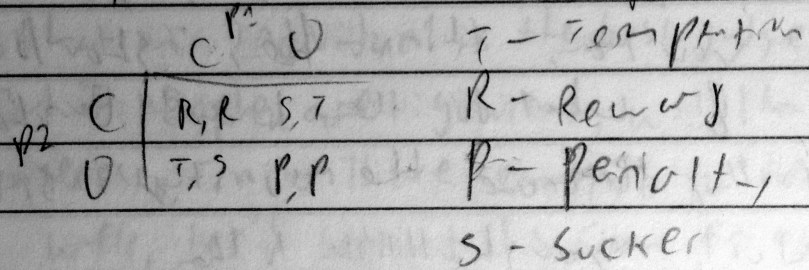 P1
C D T - Temptation
P2 C R,R S,T R - Reward
D T,S P,P P - Penalty
S - Sucker